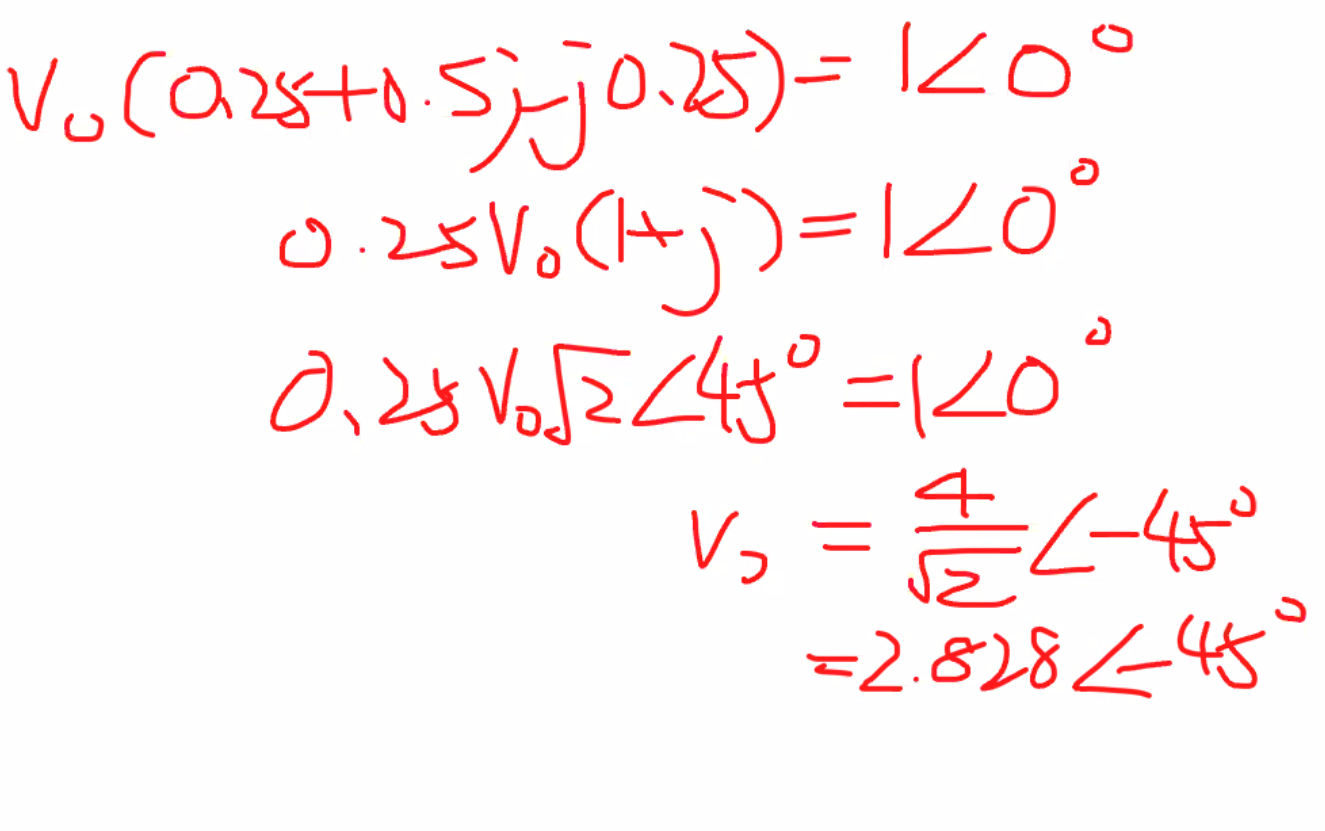 V₀(0.25+0.5j-j0.25)=1∠0°
0.25V₀(1+j)=1∠0°
0.25V₀√2∠45°=1∠0°
V₀=4/√2∠-45°
=2.828∠-45°